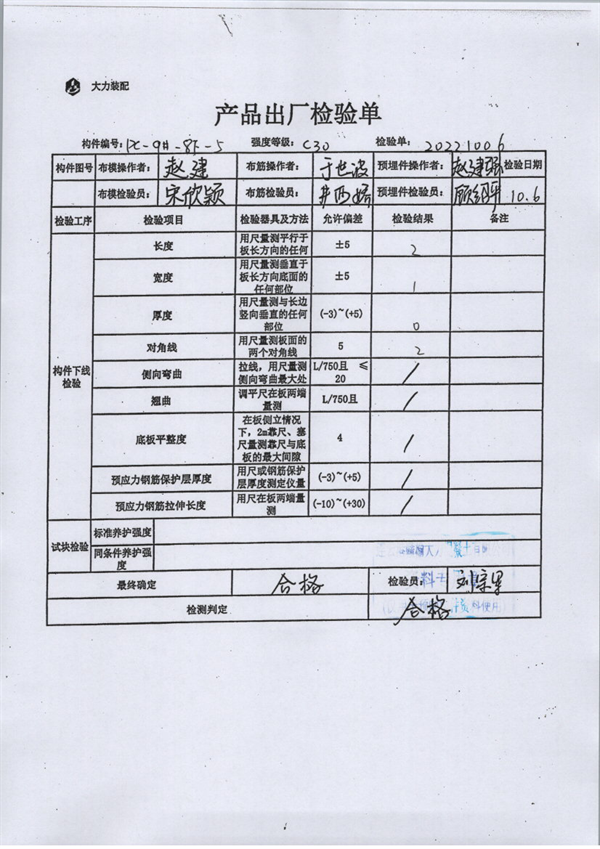 大力装配
产品出厂检验单
构件编号: PC-9#-8F-5 强度等级: C30 检验单: 20221006
构件图号 布模操作者: 赵建 布筋操作者: 于世波 预埋件操作者: 赵建强 检验日期
布模检验员: 宋欣颖 布筋检验员: 预埋件检验员: 10.6
检验工序 检验项目 检验器具及方法 允许偏差 检验结果 备注
构件下线检验
长度 用尺量测平行于板长方向的任何 ±5 2
宽度 用尺量测垂直于板长方向底面的任何部位 ±5 1
厚度 用尺量测与长边竖向垂直的任何部位 (-3)~(+5) 0
对角线 用尺量测板面的两个对角线 5 2
侧向弯曲 拉线，用尺量测侧向弯曲最大处 L/750且 ≤20 /
翘曲 调平尺在板两端量测 L/750且 /
底板平整度 在板侧立情况下，2m靠尺、塞尺量测靠尺与底板的最大间隙 4 /
预应力钢筋保护层厚度 用尺或钢筋保护层厚度测定仪量 (-3)~(+5) /
预应力钢筋拉伸长度 用尺在板两端量测 (-10)~(+30) /
试块检验 标准养护强度
同条件养护强度
最终确定 合格 检验员:
检测判定 合格